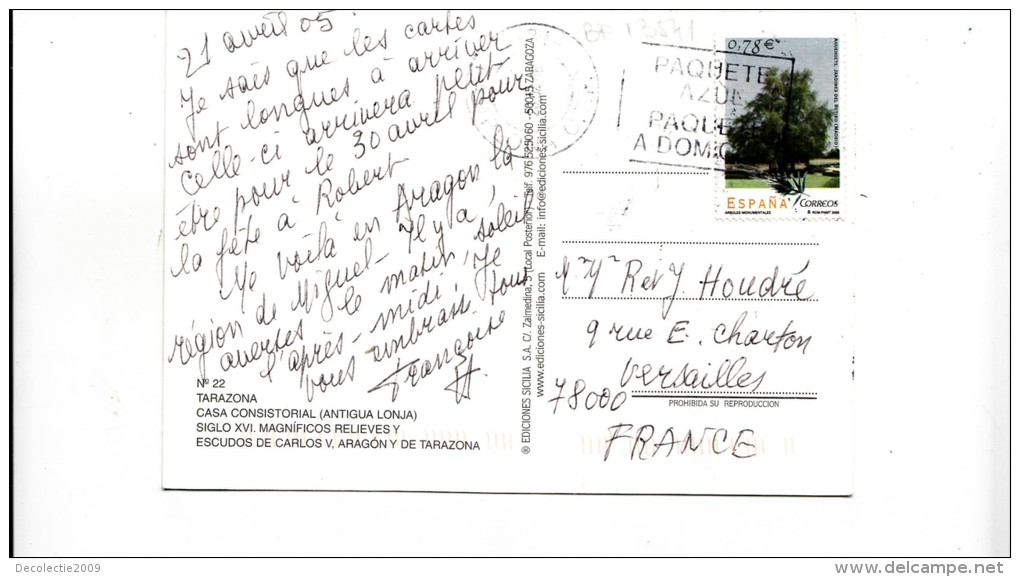 21 avril 05
Je sais que les cartes
sont longues à arriver
celle-ci arrivera petit
être pour le 30 avril pour
la fête à Robert
Me voilà en Aragon la
région de Miguel - Il y a,
averses le matin, soleil
l'après-midi. Je
vous embrasse tous
Françoise
H.
Nº 22
TARAZONA
CASA CONSISTORIAL (ANTIGUA LONJA)
SIGLO XVI. MAGNÍFICOS RELIEVES Y
ESCUDOS DE CARLOS V, ARAGÓN Y DE TARAZONA
® EDICIONES SICILIA S.A. C/. Zalmedina, (Local Posterior) Telf. 976 525060 - 50015 ZARAGOZA
www.ediciones-sicilia.com E-mail: info@ediciones-sicilia.com
BF 13541
PAQUETE
AZUL
PAQUE
A DOMIC
0,78€
AHUEHUETE. JARDINES DEL RETIRO (MADRID)
ESPAÑA CORREOS
ÁRBOLES MONUMENTALES
Mr Me R et J Houdré
9 rue E. Charton
Versailles
78000
PROHIBIDA SU REPRODUCCION
FRANCE
Decolectie2009
delcampe.net